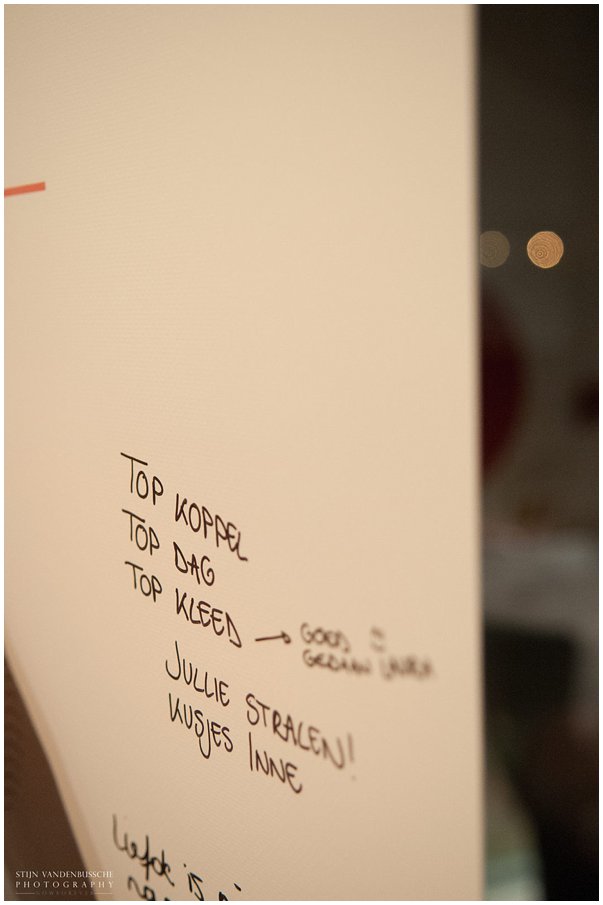 TOP KOPPEL
TOP DAG
TOP KLEED → GOED
GEDAAN LAURA
JULLIE STRALEN!
KUSJES INNE
Liefde is
STIJN VANDENBUSSCHE
PHOTOGRAPHY